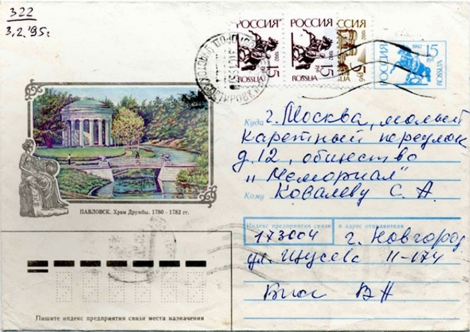 322
3.2.95г
РОССИЯ
РОССИЯ
РОССИЯ
15
ROSSIJA
15
ROSSIJA
1992
15
ROSSIJA
Куда
г. Москва, малый
каретный переулок
д. 12, общество
„Мемориал"
Кому
Ковалеву С. А.
ПАВЛОВСК. Храм Дружбы. 1780 - 1782 гг.
Индекс предприятия связи и адрес отправителя
173004 г. Новгород
ул. Щусева 11-174
Пишите индекс предприятия связи места назначения